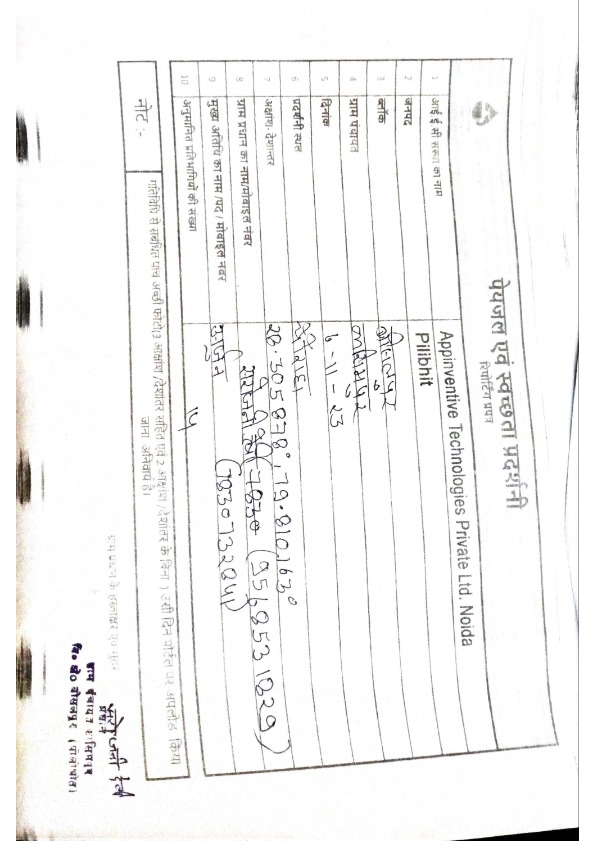 पेयजल एवं स्वच्छता प्रदर्शनी
रिपोर्टिंग प्रपत्र
1 आई ई सी संस्था का नाम Appinventive Technologies Private Ltd. Noida
2 जनपद Pilibhit
3 ब्लॉक
4 ग्राम पंचायत
5 दिनांक 6-11-23
6 प्रदर्शनी स्थल चौराहा
7 अक्षांश-देशान्तर 28.305878°, 79.810163°
8 ग्राम प्रधान का नाम/मोबाइल नंबर (9568531829)
9 मुख्य अतिथि का नाम /पद / मोबाइल नंबर (7830732841)
10 अनुमानित प्रतिभागियों की संख्या
नोट :- गतिविधि से संबंधित पांच अच्छी फोटो(3 अक्षांश /देशांतर सहित एवं 2 अक्षांश /देशांतर के बिना ) उसी दिन पोर्टल पर अपलोड किया
जाना अनिवार्य है।
ग्राम प्रधान के हस्ताक्षर एवं मुहर
प्रधान
ग्राम पंचायत
वि० खे० (पीलीभीत)